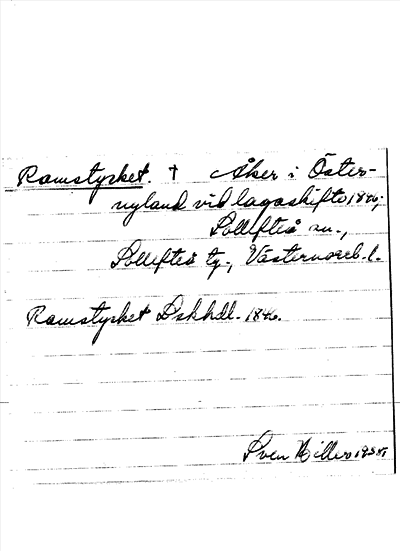 Ramstycket. † Åker i Öster-
nyland vid lagaskifte 1846;
Sollefteå sn.,
Sollefteå tg., Västernorrl. l.
Ramstycket Lskhdl. 1846.
Sven Hiller